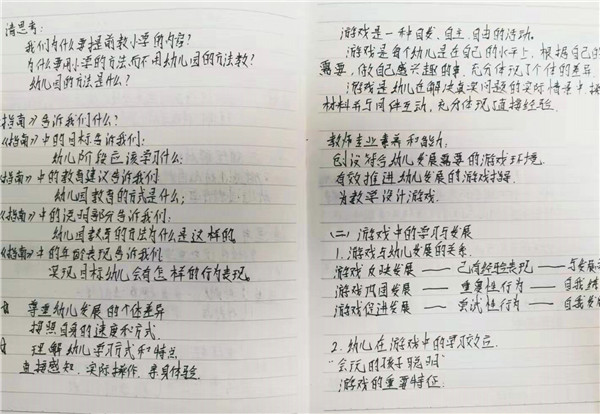 请思考:
我们为什么要提前教小学的内容?
为什么要用小学的方法而不用幼儿园的方法教?
幼儿园的方法是什么?
《指南》告诉我们什么?
《指南》中的目标告诉我们:
幼儿阶段应该学习什么;
《指南》中的教育建议告诉我们
幼儿园教育的方式是什么;
《指南》中的说明部分告诉我们:
幼儿园教育的方法为什么是这样的
《指南》中的年龄表现告诉我们
实现目标幼儿会有怎样的行为表现。
尊重幼儿发展的个体差异
按照自身的速度和方式
理解幼儿学习方式和特点
直接感知、实际操作、亲身体验.
游戏是一种自发、自主、自由的活动。
游戏是每个幼儿是在自己的水平上,根据自己的
需要,做自己感兴趣的事,充分体现了个体的差异
游戏是幼儿在解决真实问题的实际情景中
材料并与同伴互动,充分体现了直接经验.
教师专业素养和能力:
创设符合幼儿发展需要的游戏环境
有效推进幼儿发展的游戏指导.
为教学设计游戏.
(二)游戏中的学习与发展
1. 游戏与幼儿发展的关系.
游戏反映发展 —— 已有经验表现 —— 与发展
游戏巩固发展 —— 重复性行为 —— 自我
游戏促进发展 —— 尝试性行为 —— 自我
2. 幼儿在游戏中的学习效应.
"会玩的孩子聪明"
游戏的重要特征: